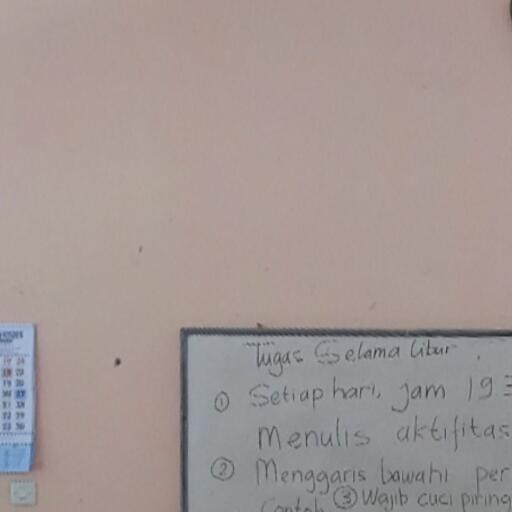 Tugas Selama libur.
① Setiap hari, jam 19
Menulis aktifitas
② Menggaris bawahi per
Contoh ③ Wajib cuci piring